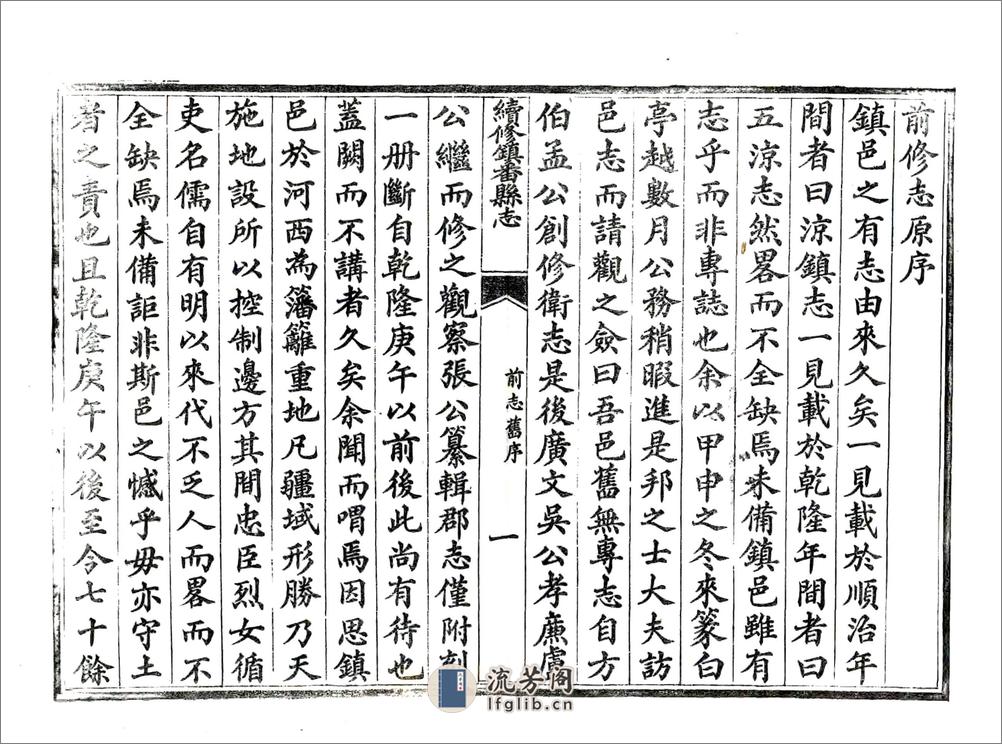 前修志原序
鎮邑之有志由來久矣一見載於順治年
間者曰涼鎮志一見載於乾隆年間者曰
五涼志然畧而不全缺焉未備鎮邑雖有
志乎而非專誌也余以甲申之冬來篆白
亭越數月公務稍暇進是邦之士大夫訪
邑志而請觀之僉曰吾邑舊無專志自方
伯孟公創修衛志是後廣文吳公孝廉盧
續修鎮番縣志
前志舊序
一
公繼而修之觀察張公纂輯郡志僅附刻
一册斷自乾隆庚午以前後此尚有待也
蓋闕而不講者久矣余聞而喟焉因思鎮
邑於河西為籓籬重地凡疆域形勝乃天
施地設所以控制邊方其間忠臣烈女循
吏名儒自有明以來代不乏人而畧而不
全缺焉未備詎非斯邑之憾乎毋亦守土
者之責也且乾隆庚午以後至今七十餘
流芳阁
lfglib.cn